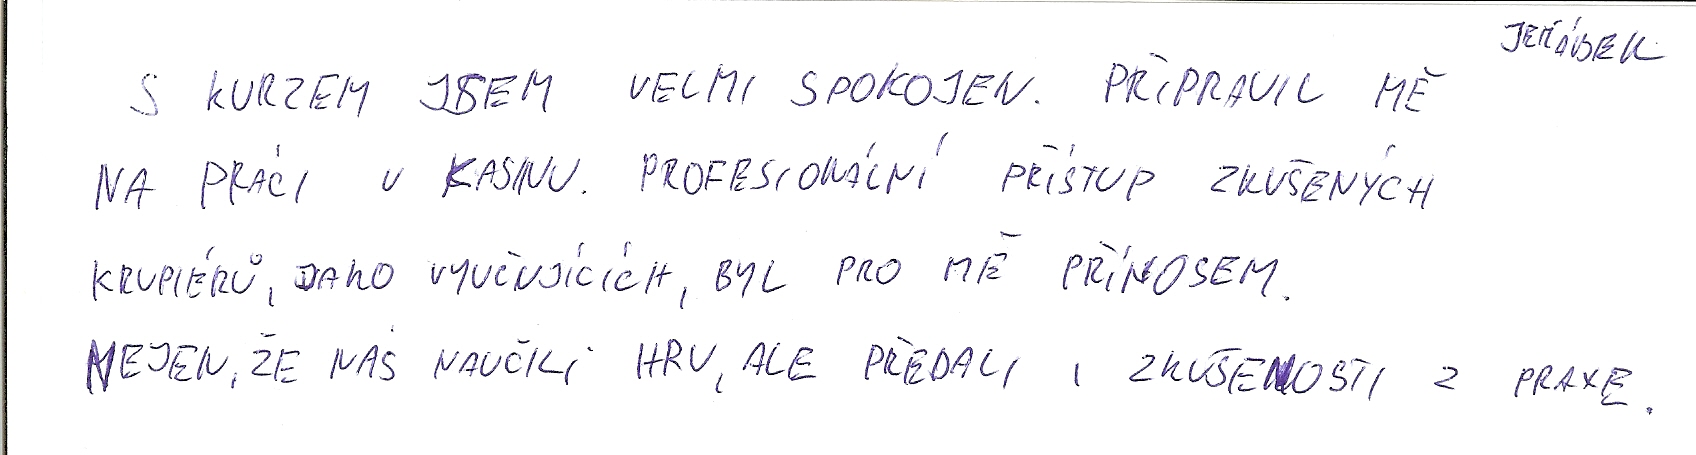 JEŘÁBEK
S KURZEM JSEM VELMI SPOKOJEN. PŘIPRAVIL MĚ
NA PRÁCI V KASINU. PROFESIONÁLNÍ PŘÍSTUP ZKUŠENÝCH
KRUPIÉRŮ, JAKO VYUČUJÍCÍCH, BYL PRO MĚ PŘÍNOSEM.
NEJEN, ŽE NÁS NAUČILI HRU, ALE PŘEDALI I ZKUŠENOSTI Z PRAXE.